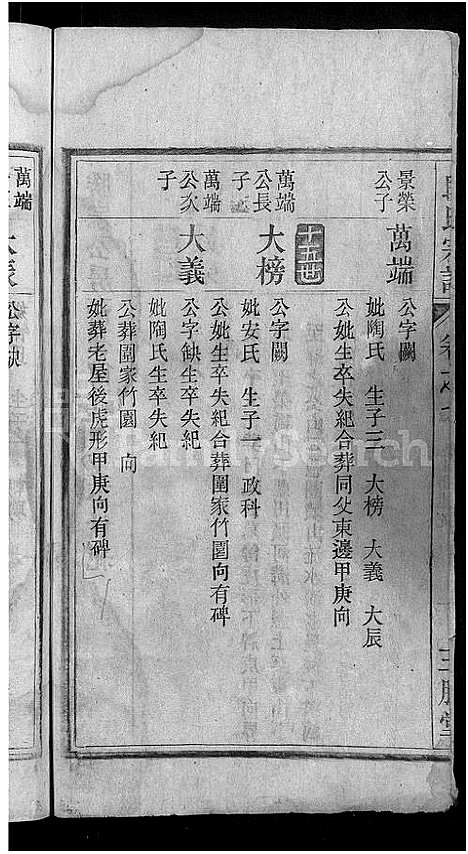 景榮
公子
萬端
公字闕
妣陶氏 生子三 大榜 大義 大辰
公妣生卒失紀合葬同父東邊甲庚向
十五世
萬端
公長
子
大榜
公字闕
妣安氏 生子一 政科
公妣生卒失紀合葬圍家竹園向有碑
萬端
公次
子
大義
公字缺生卒失紀
妣陶氏生卒失紀
公葬圍家竹園 向
妣葬老屋後虎形甲庚向有碑
萬端
FamilySearch